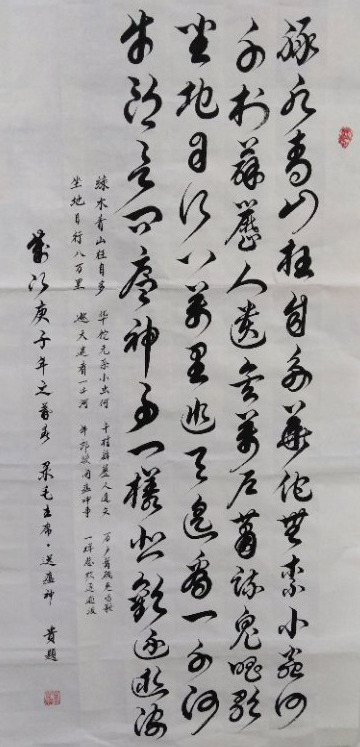 綠水青山枉自多華佗無奈小蟲何
千村薜荔人遺矢萬戶蕭疏鬼唱歌
坐地日行八萬里巡天遙看一千河
牛郎欲問瘟神事一樣悲歡逐逝波
绿水青山枉自多 华佗无奈小虫何 千村薜荔人遗矢 万户萧疏鬼唱歌
坐地日行八万里 巡天遥看一千河 牛郎欲问瘟神事 一样悲欢逐逝波
歲次庚子年之春 录毛主席·送瘟神 贵题